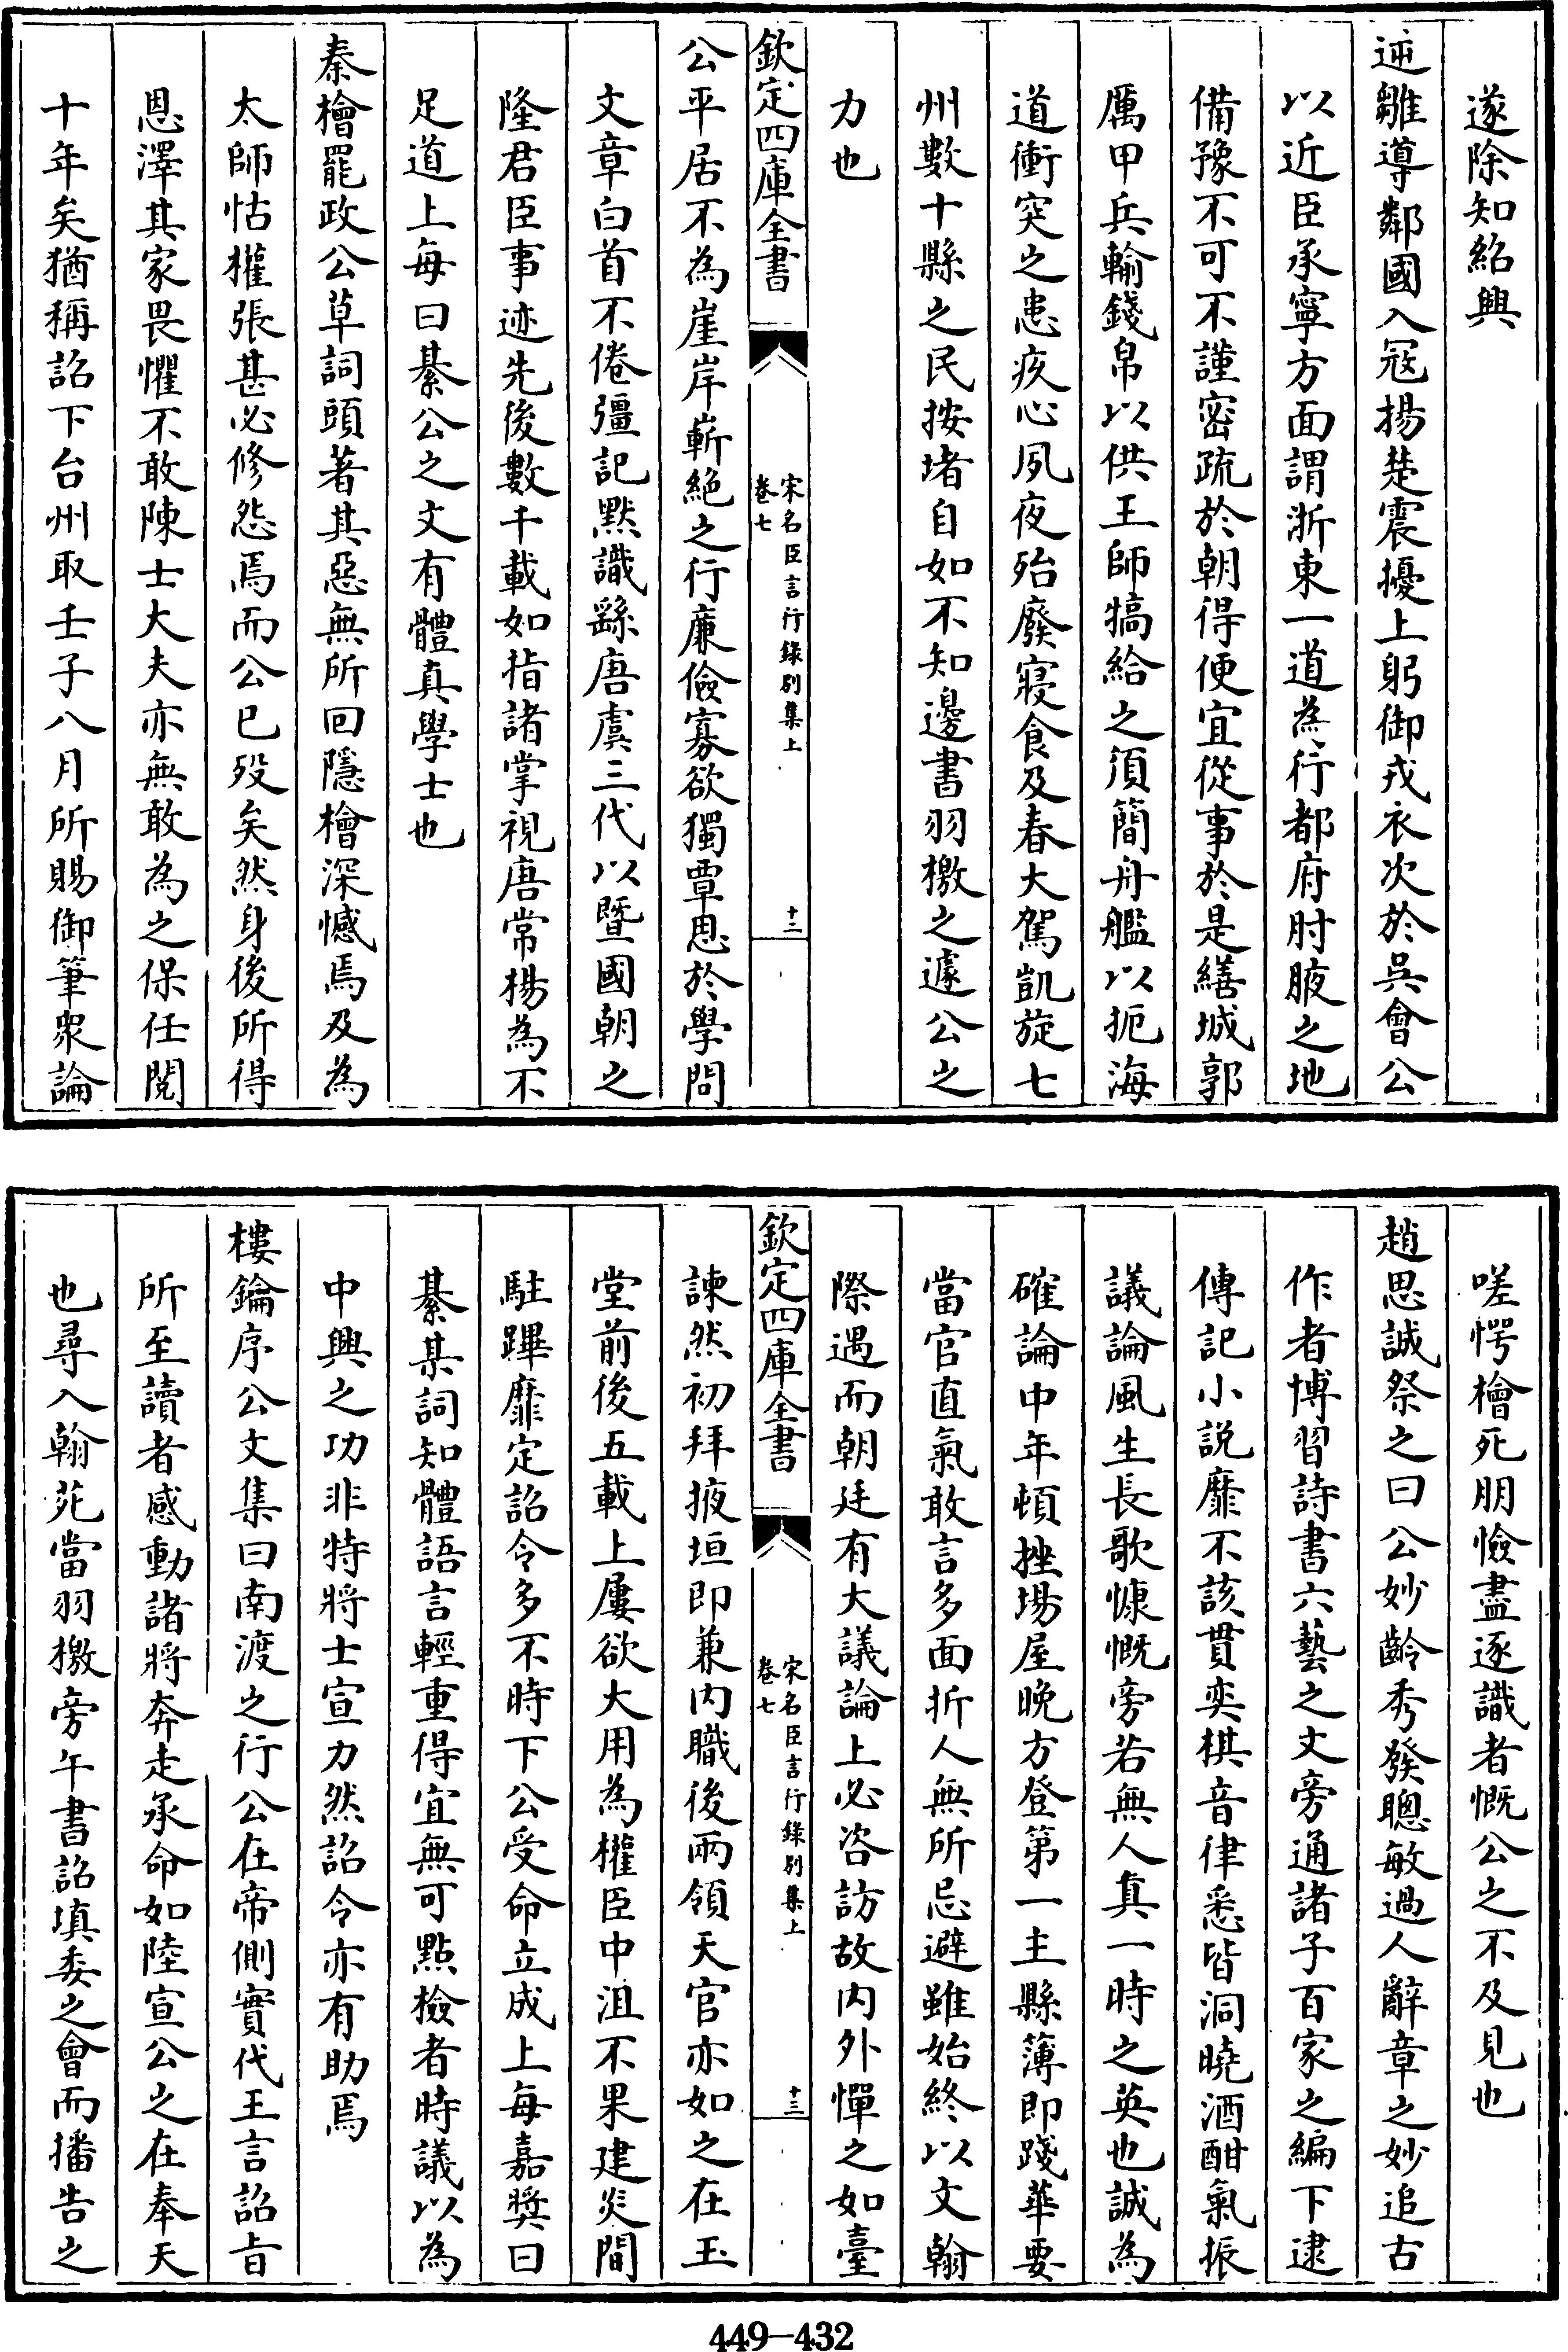 遂除知紹興
逆雛導鄰國入冦揚楚震擾上躬御戎衣次於吳會公
以近臣承寧方面謂浙東一道為行都府肘腋之地
備豫不可不謹密疏於朝得便宜從事於是繕城郭
厲甲兵輸錢帛以供王師犒給之須簡舟艦以扼海
道衝突之患疚心夙夜殆廢寢食及春大駕凱旋七
州數十縣之民按堵自如不知邊書羽檄之遽公之
力也
欽定四庫全書
宋名臣言行錄别集上
卷七
十二
公平居不為崖岸嶄絶之行廉儉寡欲獨覃思於學問
文章白首不倦彊記默識繇唐虞三代以暨國朝之
隆君臣事迹先後數千載如指諸掌視唐常楊為不
足道上每曰綦公之文有體真學士也
秦檜罷政公草詞頭著其惡無所回隱檜深憾焉及為
太師怙權張甚必修怨焉而公已歿矣然身後所得
恩澤其家畏懼不敢陳士大夫亦無敢為之保任閱
十年矣猶稱詔下台州取壬子八月所賜御筆衆論
嗟愕檜死朋憸盡逐識者慨公之不及見也
趙思誠祭之曰公妙齡秀發聰敏過人辭章之妙追古
作者博習詩書六藝之文旁通諸子百家之編下逮
傳記小説靡不該貫奕棋音律悉皆洞曉酒酣氣振
議論風生長歌慷慨旁若無人真一時之英也誠為
確論中年頓挫場屋晩方登第一主縣簿即踐華要
當官直氣敢言多面折人無所忌避雖始終以文翰
際遇而朝廷有大議論上必咨訪故内外憚之如臺
欽定四庫全書
宋名臣言行錄别集上
卷七
十三
諫然初拜掖垣即兼内職後兩領天官亦如之在玉
堂前後五載上屢欲大用為權臣中沮不果建炎間
駐蹕靡定詔令多不時下公受命立成上每嘉奬曰
綦某詞知體語言輕重得宜無可點檢者時議以為
中興之功非特將士宣力然詔令亦有助焉
樓鑰序公文集曰南渡之行公在帝側實代王言詔旨
所至讀者感動諸將奔走承命如陸宣公之在奉天
也尋入翰苑當羽檄旁午書詔填委之會而播告之
449-432